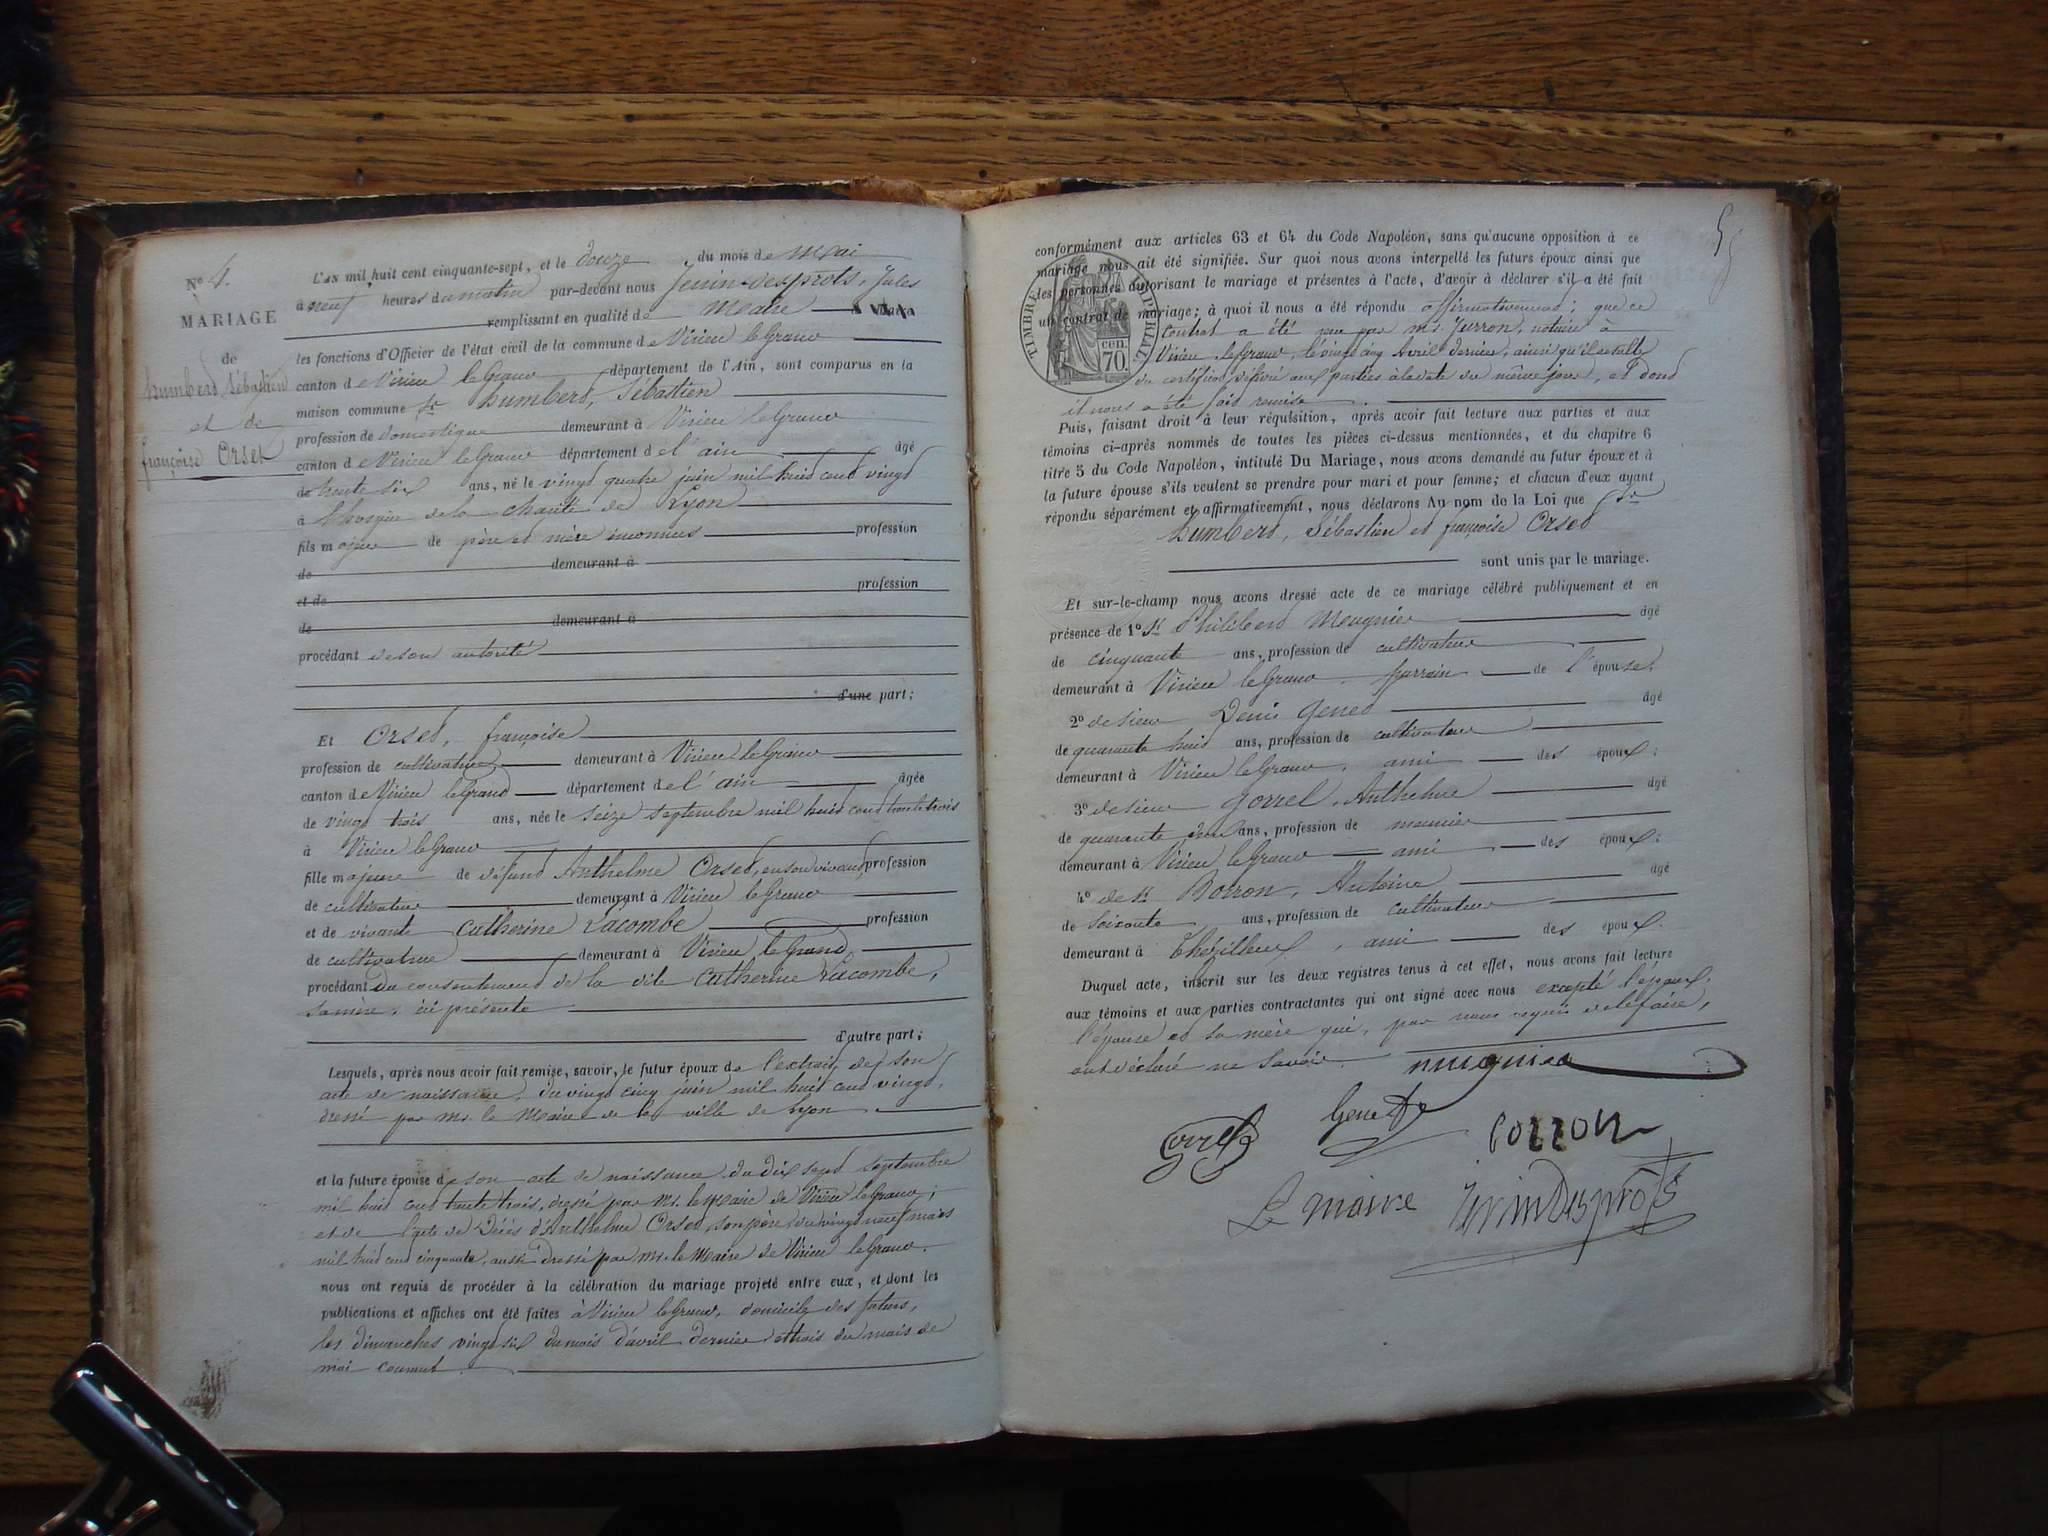 N° 4.
MARIAGE
de
humbert, Sébastien
et de
françoise Orset
L'AN mil huit cent cinquante-sept, et le douze du mois de Mai
à neuf heures du matin par-devant nous Jenin-desprots, Jules
remplissant en qualité de Maire
les fonctions d'Officier de l'état civil de la commune de Virieu le Grand
canton de Virieu le Grand département de l'Ain, sont comparus en la
maison commune Sr humbert, Sébastien
profession de domestique demeurant à Virieu le Grand
canton de Virieu le Grand département de l'ain âgé
de trente six ans, né le vingt quatre juin mil huit cent vingt
à l'hospice de la charité de Lyon
fils majeur de père et mère inconnus profession
de demeurant à
et de profession
de demeurant à
procédant de son autorité
d'une part;
Et Orset, françoise
profession de cultivatrice demeurant à Virieu le Grand
canton de Virieu le Grand département de l'ain âgée
de vingt trois ans, née le seize septembre mil huit cent trente trois
à Virieu le Grand
fille majeure de défunt Anthelme Orset, en son vivant, profession
de cultivateur demeurant à Virieu le Grand
et de vivante Catherine Lacombe profession
de cultivatrice demeurant à Virieu le Grand
procédant du consentement de la dite Catherine Lacombe,
sa mère, ici présente
d'autre part;
Lesquels, après nous avoir fait remise, savoir, le futur époux de l'extrait de son
acte de naissance, du vingt cinq juin mil huit cent vingt,
dressé par Mr. le Maire de la ville de Lyon
et la future épouse de son acte de naissance du dix sept septembre
mil huit cent trente trois, dressé par Mr. le Maire de Virieu le Grand;
et de l'acte de Décès d'Anthelme Orset, son père, du vingt neuf mars
mil huit cent cinquante, aussi dressé par Mr. le Maire de Virieu le Grand.
nous ont requis de procéder à la célébration du mariage projeté entre eux, et dont les
publications et affiches ont été faites à Virieu le Grand, domicile des futurs,
les dimanches vingt six du mois d'avril dernier et trois du mois de
mai courant.
conformément aux articles 63 et 64 du Code Napoléon, sans qu'aucune opposition à ce
mariage nous ait été signifiée. Sur quoi nous avons interpellé les futurs époux ainsi que
les personnes autorisant le mariage et présentes à l'acte, d'avoir à déclarer s'il a été fait
un contrat de mariage; à quoi il nous a été répondu affirmativement; que ce
contrat a été reçu par Mr. Jurron, notaire à
Virieu le Grand, le vingt cinq Avril dernier, ainsi qu'il résulte
du certificat délivré aux parties à la date du même jour, et dont
il nous a été fait remise
TIMBRE IMPÉRIAL
70. cen
Puis, faisant droit à leur réquisition, après avoir fait lecture aux parties et aux
témoins ci-après nommés de toutes les pièces ci-dessus mentionnées, et du chapitre 6
titre 5 du Code Napoléon, intitulé Du Mariage, nous avons demandé au futur époux et à
la future épouse s'ils veulent se prendre pour mari et pour femme; et chacun d'eux ayant
répondu séparément et affirmativement, nous déclarons Au nom de la Loi que Sr
humbert, Sébastien et françoise Orset
sont unis par le mariage.
Et sur-le-champ nous avons dressé acte de ce mariage célébré publiquement et en
présence de 1° Sr Philibert Meugnier âgé
de cinquante ans, profession de cultivateur
demeurant à Virieu le Grand parrain de l'épouse.
2° de sieur Denis Genet âgé
de quarante huit ans, profession de cultivateur
demeurant à Virieu le Grand, ami des époux;
3° de sieur Gorrel, Anthelme âgé
de quarante deux ans, profession de meunier
demeurant à Virieu le Grand ami des époux;
4° de Sr Borron, Antoine âgé
de soixante ans, profession de cultivateur
demeurant à Thézillieux, ami des époux.
Duquel acte, inscrit sur les deux registres tenus à cet effet, nous avons fait lecture
aux témoins et aux parties contractantes qui ont signé avec nous excepté l'époux,
l'épouse et sa mère qui, par nous requis de le faire,
ont déclaré ne savoir.
mugnier
Genet
Gorrel
borron
Le maire Jenin Desprôts